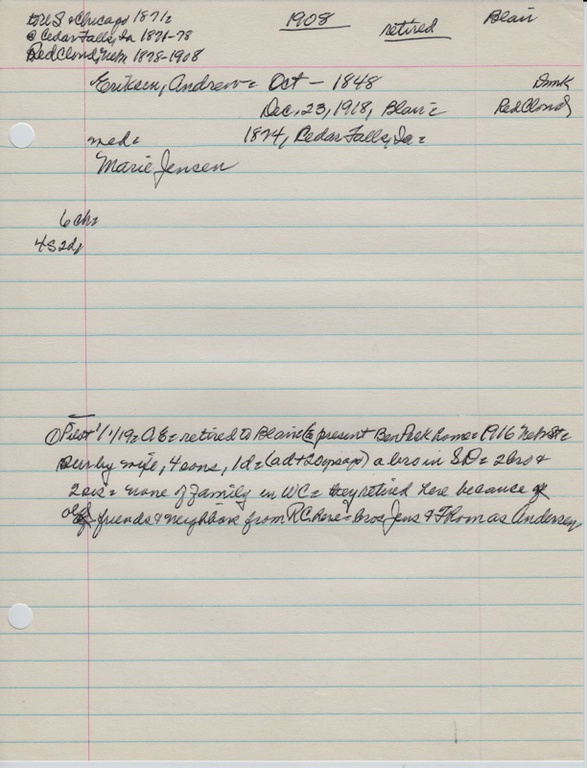 to US & Chicago 1871=
@ Cedar Falls, Ia 1871-78
Red Cloud, Nebr 1878-1908
1908
retired
Blair
Eriksen, Andrew = Oct - 1848
Dmk
Dec. 23, 1918, Blair =
Red Cloud
med =
1874, Cedar Falls, Ia =
Marie Jensen
6 ch =
4S 2d,
① Pilot 1/1/19 = A E = retired to Blair @ present Ben Peck home = 1916 Nebr St =
Sur by wife, 4 sons, 1d = (a d + 20 yrs ago) a bro in S.D = 2 bro &
2 sis = none of family in WC = they retired here because
of friends & neighbors from R.C. here = bros Jens & Thomas Andersen